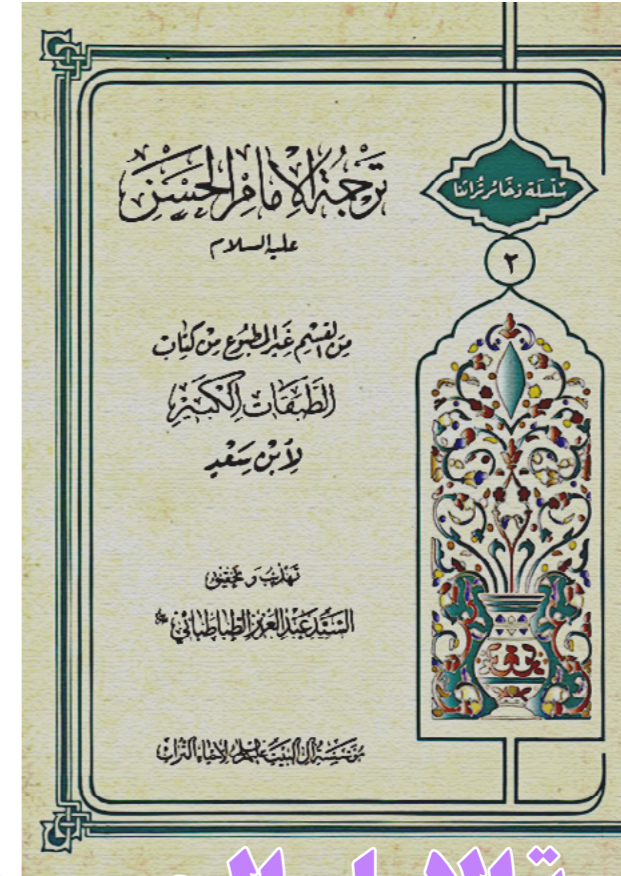 سلسلة ذخائر تراثنا
٢
ترجمة الإمام الحسن
عليه السلام
من القسم غير المطبوع من كتاب
الطبقات الكبير
لابن سعد
تهذيب و تحقيق
السيد عبد العزيز الطباطبائي
مؤسسة آل البيت عليهم السلام لإحياء التراث